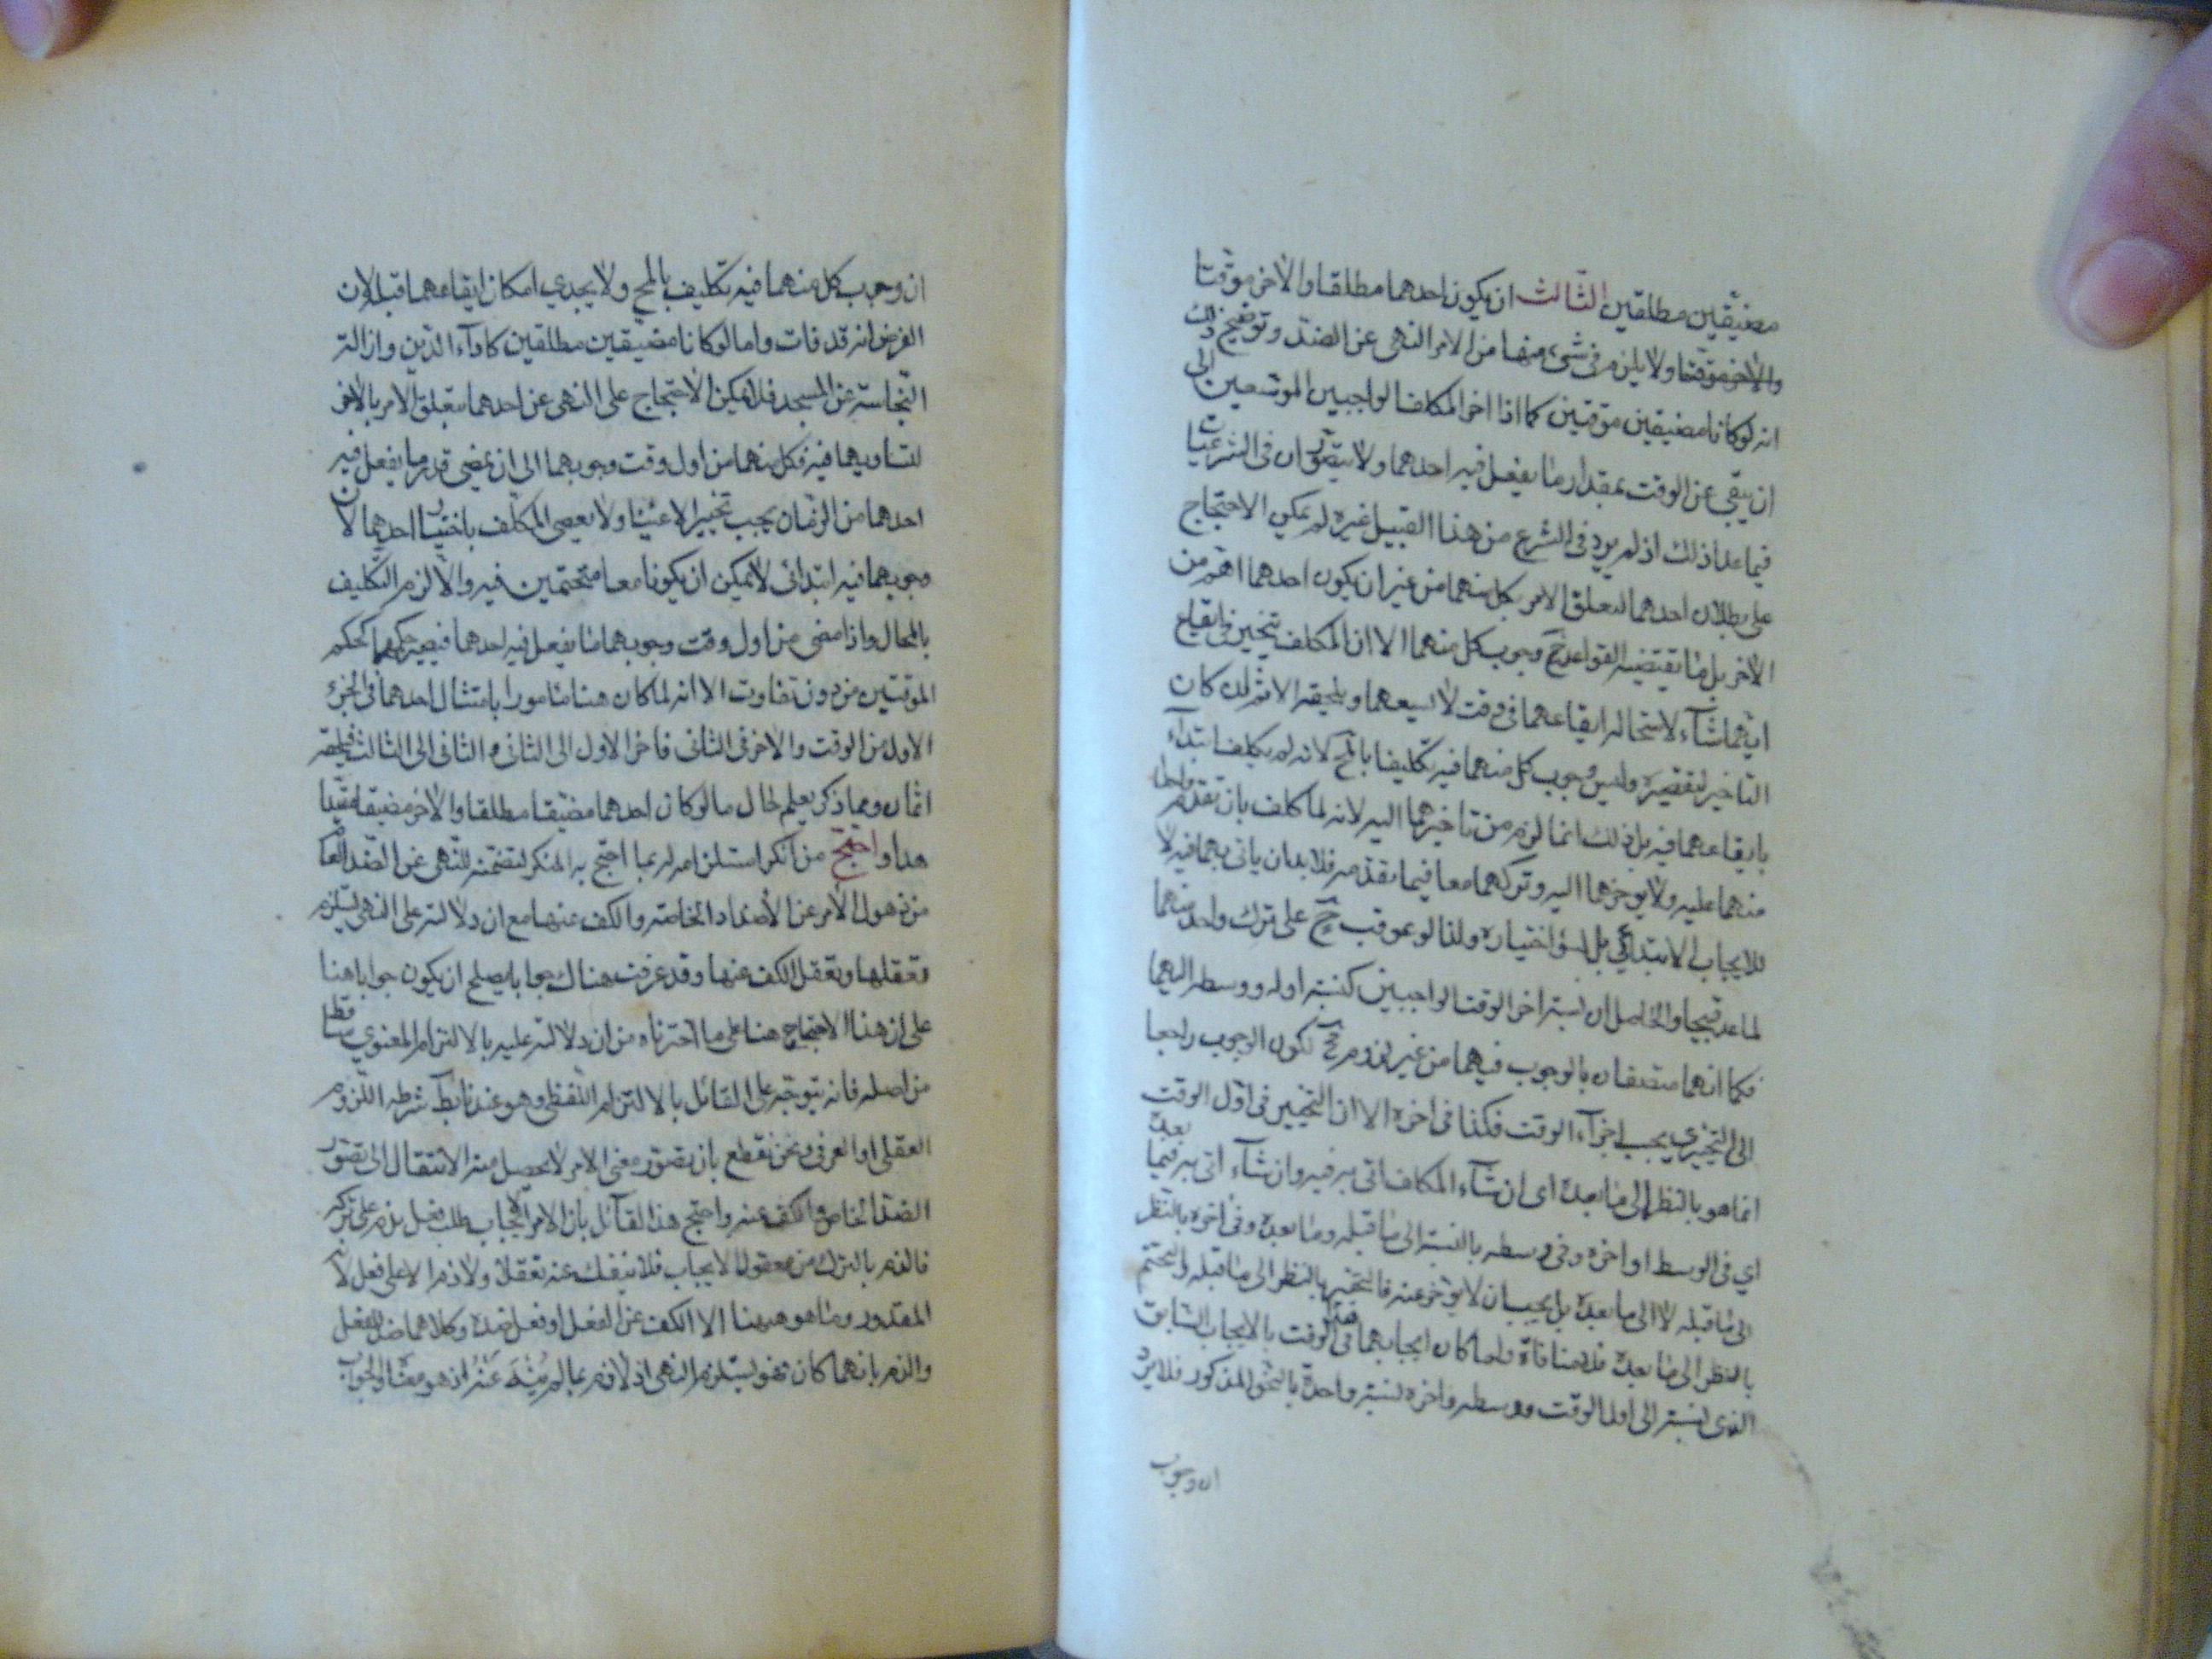 مضيقين مطلقين الثالث ان يكون احدهما مطلقا والاخر موقتا
والاخر موقتا ولا يلزم فى شىء منها من الامر النهى عن الضد وتوضيح ذلك
انه لو كانا مضيقين موقتين كما اذا اخر المكلف الواجبين الموسعين الى
ان يبقى من الوقت بمقدار ما يفعل فيه احدهما ولا يتصوران فى الشرعيات
فيما عدا ذلك اذ لم يرد فى الشرع من هذا القبيل غيره لم يمكن الاحتجاج
على بطلان احدهما لتعلق الامر بكل منهما من غير ان يكون احدهما اهم من
الاخر بل ما يقتضيه القواعد ح وجوب كل منهما الا ان المكلف يتخير فى ايقاع
ايهما شآء لاستحالة ايقاعهما فى وقت لا يسعهما ويلحقه الاثم لان كان
التاخير لتقصيره وليس وجوب كل منهما فيه تكليفا بالمح لانه لم يكلف ابتدآء
بايقاعهما فيه بل ذلك انما لزم من تاخيرهما اليه لانه لما كلف بان يقدم واحدا
منهما عليه ولا يوخرهما اليه وتركهما معا فيما تقدمه فلا بد ان ياتى بهما فيه لا
للايجاب الابتدائي بل لسوء اختياره ولذا لو عوقب ح على ترك واحد منهما
لما عد قبيحا والحاصل ان نسبة اخر الوقت الواجبين كنسبة اوله ووسطه اليهما
فكما انهما متصفان بالوجوب فيهما من غير لزوم مح لكون الوجوب راجعا
الى التخييرى بحسب اجزآء الوقت فكذا فى اخره الا ان التخيير فى اول الوقت
انما هو بالنظر الى ما بعده اى ان شآء المكلف اتى به فيه وان شآء اتى به فيما بعده
اي فى الوسط او اخره وفى وسطه بالنسبة الى ما قبله وما بعده وفى اخره بالنظر
الى ما قبله لا الى ما بعده بل يجب ان لا يوخر عنه فالتخير بالنظر الى ما قبله والتحتم
بالنظر الى ما بعده فلا منافاة ولما كان ايجابهما فى الوقت بالايجاب السابق
الذى نسبته الى اول الوقت ووسطه واخره نسبة واحدة بالنحو المذكور فلا يرد
ان وجوب
ان وجوب كل منهما فيه تكليف بالمح ولا يجدي امكان ايقاعهما قبل لان
الفرض انه قد فات واما لو كانا مضيقين مطلقين كادآء الدين وازالة
النجاسة عن المسجد فلا يمكن الاحتجاج على النهى عن احدهما بتعلق الامر بالاخر
لتساويهما فيه فكل منهما من اول وقت وجوبهما الى ان يمضى قدر ما يفعل فيه
احدهما من الزمان يجب تخييرا لا عينا ولا يعصى المكلف باختيار احدهما لان
وجوبهما فيه ابتدائى لا يمكن ان يكونا معا متحتمين فيه والا لزم التكليف
بالمحال واذا مضى من اول وقت وجوبهما ما يفعل فيه احدهما فيصير حكمهما كحكم
الموقتين من دون تفاوت الا انه لما كان هنا مامورا بامتثال احدهما فى الجزء
الاول من الوقت والاخر فى الثانى فاخر الاول الى الثانى والثانى الى الثالث فيلحقه
اثمان ومما ذكر يعلم حال ما لو كان احدهما مضيقا مطلقا والاخر مضيقا مقيدا
هذا واحتج من انكر استلزامه له بما احتج به المنكر لتضمنه للنهى عن الضد العام
من ذهول الامر عن الاضداد الخاصة والكف عنها مع ان دلالته على النهى يستلزم
تعقلها وتعقل الكف عنها وقد عرفت هناك جوابا يصلح ان يكون جوابا هنا
على ان هذا الاحتجاج هنا على ما اخترناه من ان دلالته عليه بالالتزام المعنوي ساقط
من اصله فانه يتوجه على القائل بالالتزام اللفظى وهو عندنا بط شرطه اللزوم
العقلى او العرفى ونحن نقطع بان تصور معنى الامر لا يحصل منه الانتقال الى تصور
الضد الخاص والكف عنه واحتج هذا القآئل بان الامر الايجاب طلب فعل يذم على تركه
فالذم بالترك من معقول الايجاب فلا ينفك عنه تعقلا ولا ذم الا على فعل لانه
المقدور وما هو هيهنا الا الكف عن الفعل او فعل ضده وكلاهما ضد للفعل
والذم بايهما كان فهو يستلزم النهى اذ لا ذم بما لم يُنْهَ عَنْهُ اذ هو معناه والجواب